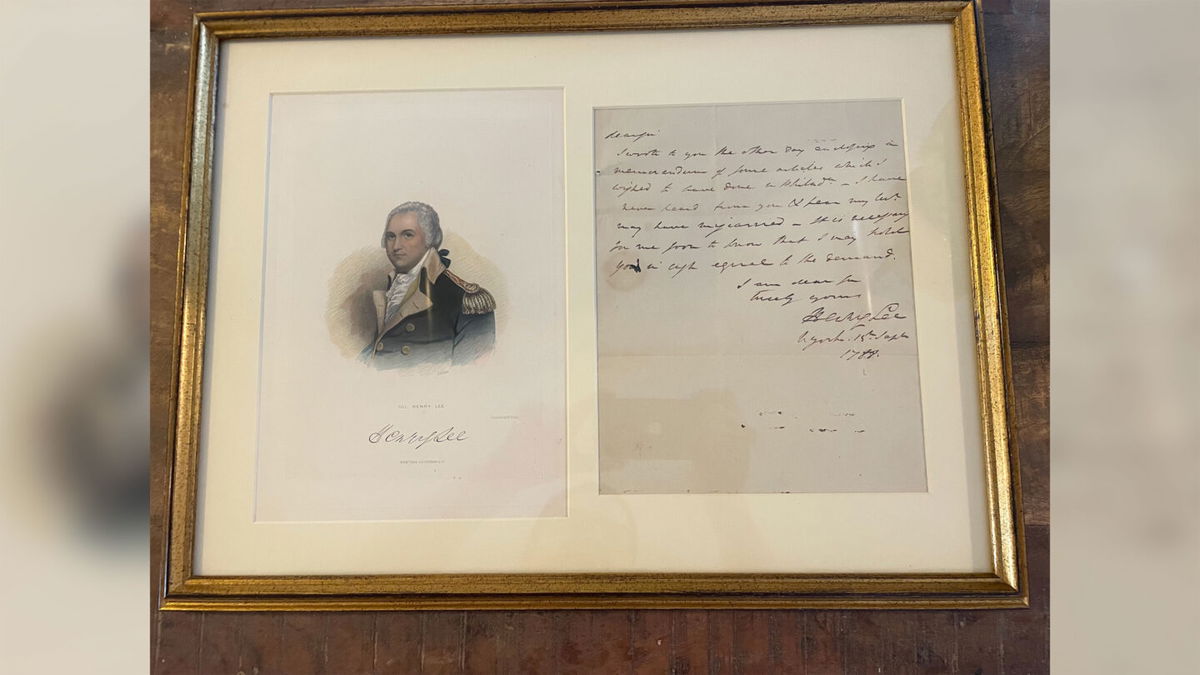 GOL. HENRY LEE
Henry Lee
dear sir
I wrote to you the other day enclosing a
memorandum of some articles which I
wished to have done in Philad.a – I have
never heard from you & fear my let.r
may have miscarried – It is necessary
for me soon to know that I may hold
you in cash equal to the demand.
I am dear sir
truly yours
Henry Lee
N york 15th Sept
1788.